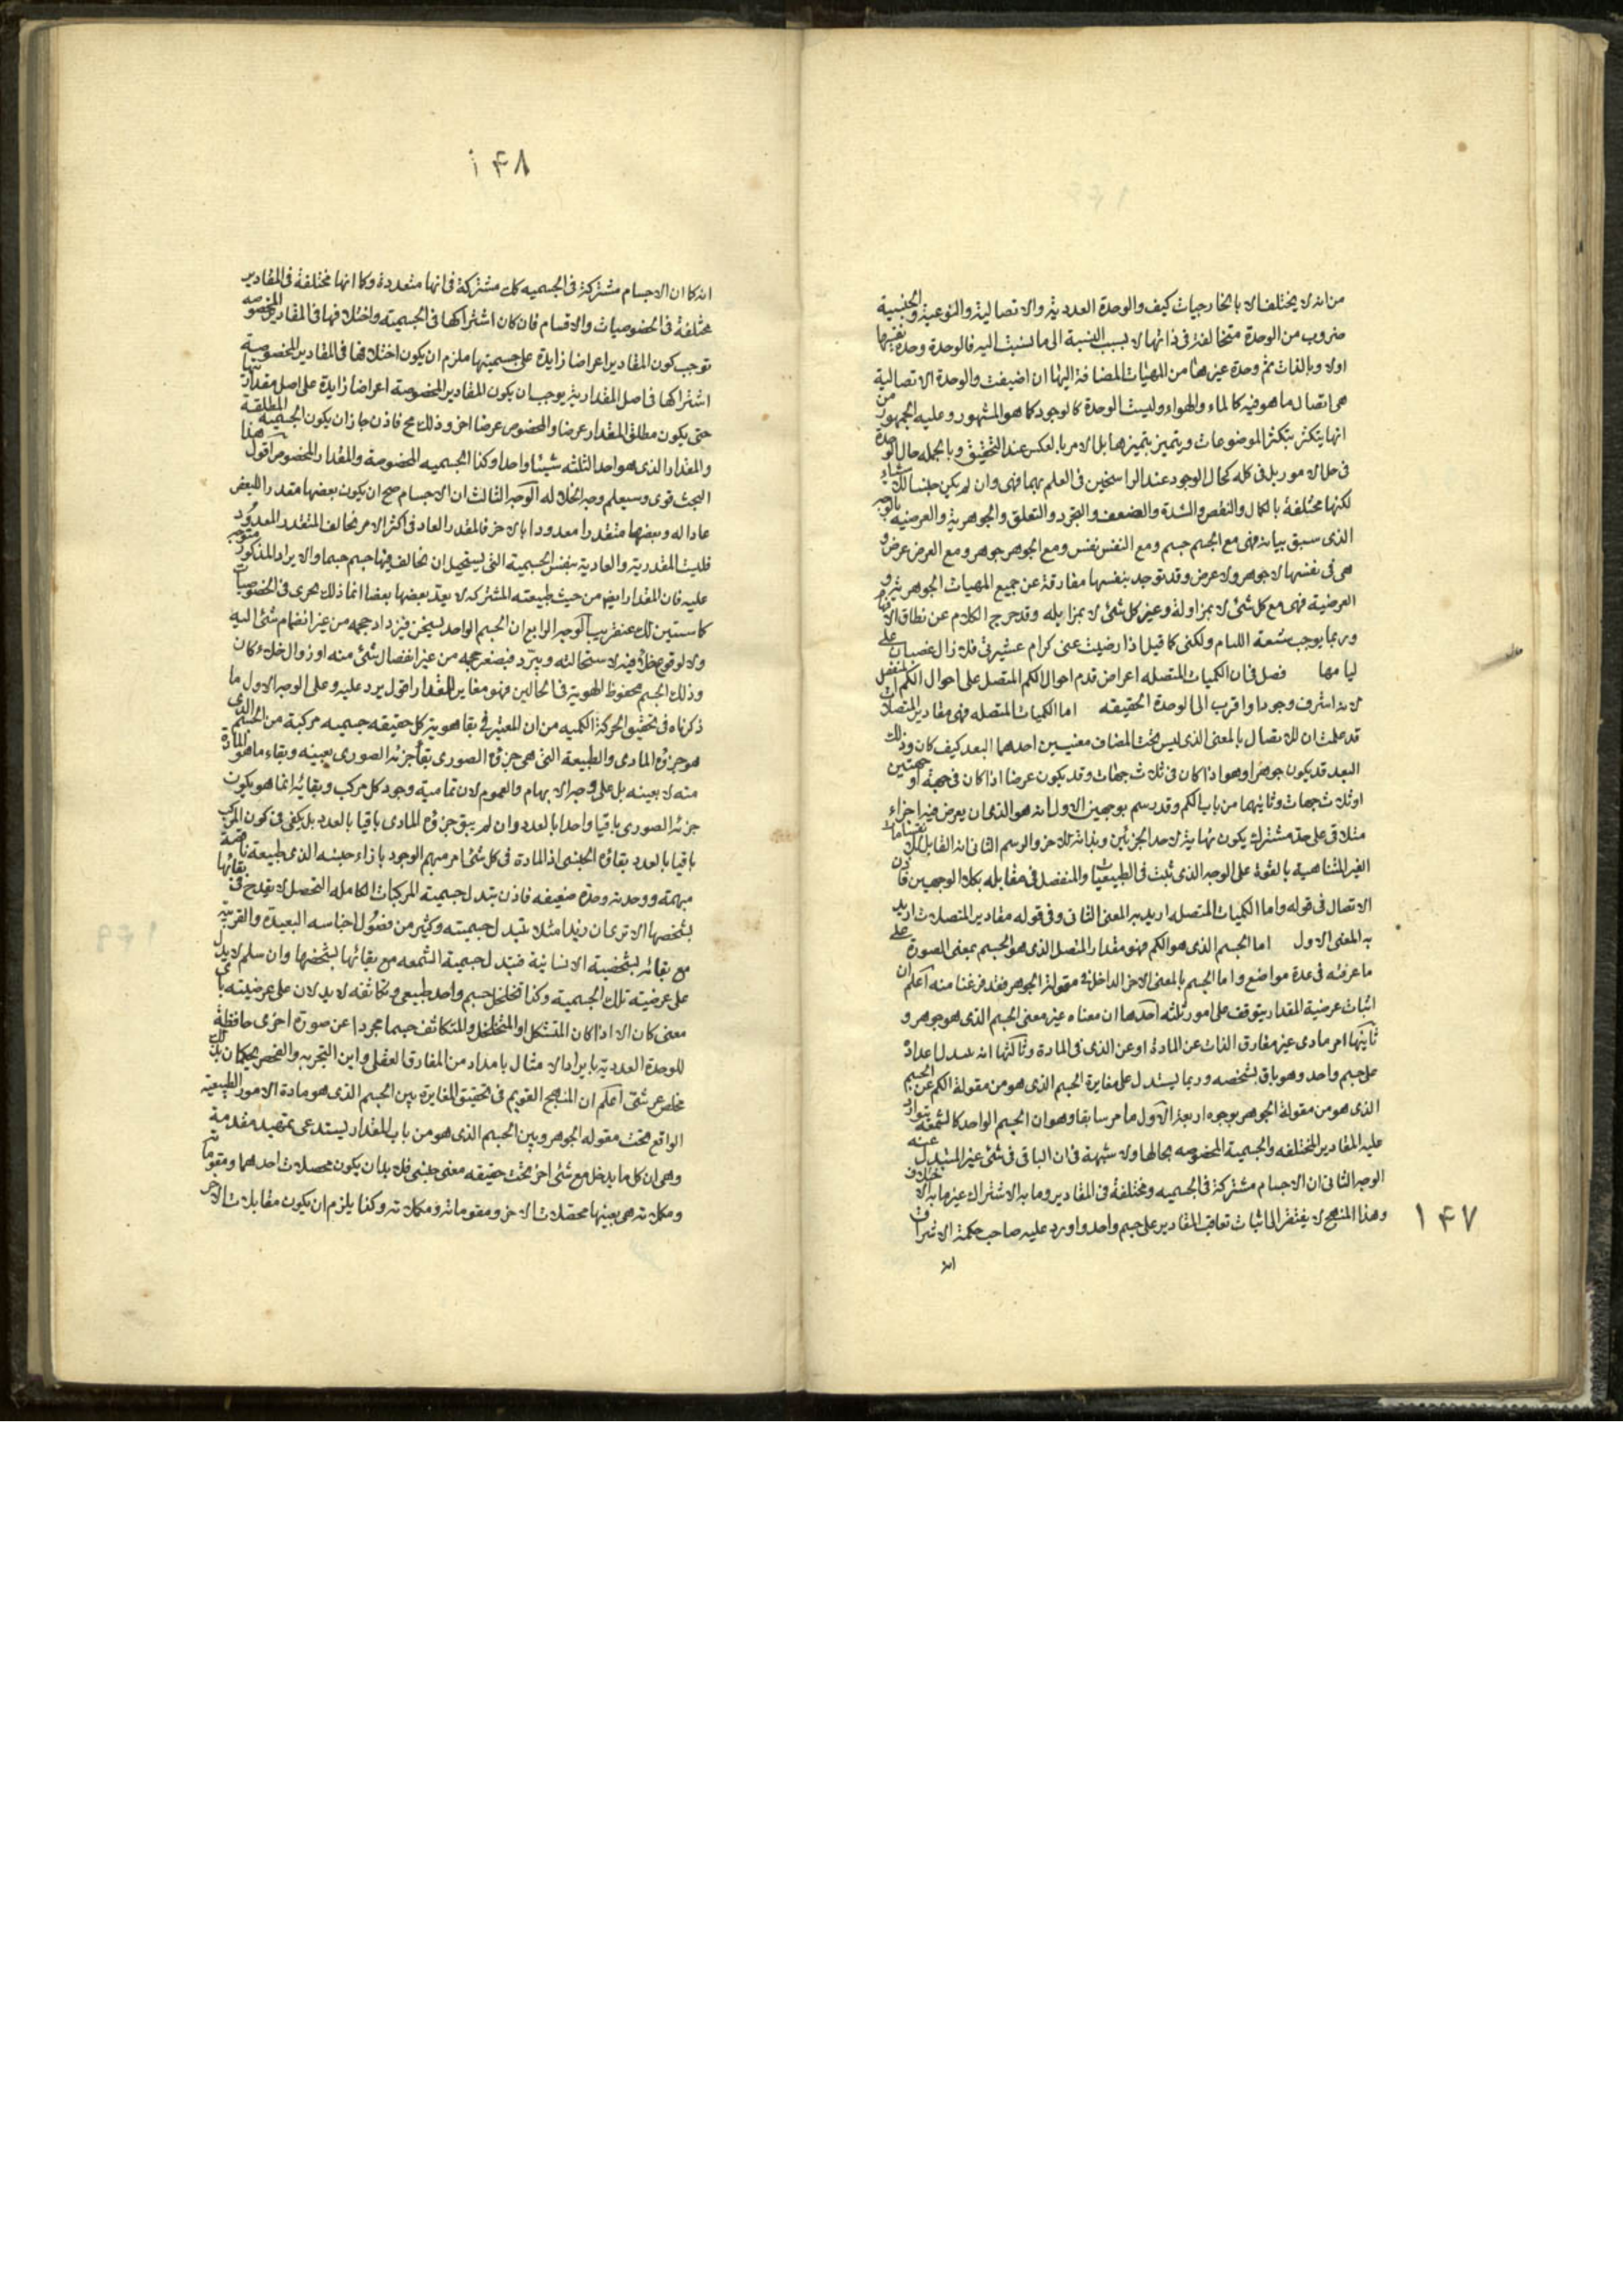 من انه لا يختلف الا بالخارجيات كيف والوحدة العددية والاتصالية والنوعية والجنسية
ضروب من الوحدة متخالفة فى ذاتها لا بسبب النسبة الى ما نسبت اليه فالوحدة وحدة بنفسها
اولا وبالذات ثم وحدة غيرها من المهيات المضافة اليها ان اضيفت والوحدة الاتصالية
هى اتصال ما هو فيه كالماء والهواء وليست الوحدة كالوجود كما هو المشهور وعليه الجمهور من
انها يتكثر بتكثر الموضوعات ويتميز بتميزها بل الامر بالعكس عند التحقيق وبالجمله حال الوحدة
فى كله كحال الوجود عند الراسخين فى العلم بهما فهى وان لم يكن جنسا
لكنها مختلفة بالكمال والنقص والشدة والضعف والتجرد والتعلق والجوهرية والعرضيه بالوجه
الذى سبق بيانه فهى مع الجسم جسم ومع النفس نفس ومع الجوهر جوهر ومع العرض عرض و
هى فى نفسها لا جوهر ولا عرض وقد توجد بنفسها مفارقة عن جميع المهيات الجوهرية و
العرضية فهى مع كل شئ لا بمزاولة وغير كل شئ لا بمزايله وقد خرج الكلام عن نطاق الافهام
وربما يوجب شنعة اللئام ولكنى كما قيل اذا رضيت عنى كرام عشيرتى فلا زال غضبانا على
ليامها فصل فى ان الكميات المتصله اعراض قدم احوال الكم المتصل على احوال الكم المنفصل
لانه اشرف وجودا واقرب الى الوحدة الحقيقه اما الكميات المتصله فهى مقادير المتصلات
قد علمت ان للاتصال بالمعنى الذى ليس تحت المضاف معنيين احدهما البعد كيف كان وذلك
البعد قد يكون جوهرا وهو اذا كان فى ثلاث جهات وقد يكون عرضا اذا كان فى جهة او جهتين
او ثلاث جهات وثانيهما من باب الكم وقد رسم بوجهين الاول انه هو الذى ان يعرض فيه اجزاء
متلاقى على حد مشترك يكون نهاية لاحد الجزئين وبداية للاخر والرسم الثانى انه القابل للانقسامات
الغير المتناهية بالقوة على الوجه الذى ثبت فى الطبيعيات والمنفصل فى مقابله بكلا الوجهين فاذن
الاتصال فى قوله واما الكميات المتصله اريد به المعنى الثانى وفى قوله مقادير المتصلات اريد
به المعنى الاول اما الجسم الذى هو الكم فهو مقدار المتصل الذى هو الجسم بمعنى الصورة على
ما عرفته فى عدة مواضع واما الجسم بالمعنى الاخر الداخل فى مقولة الجوهر فقد فرغنا منه اعلم ان
اثبات عرضية المقدار يتوقف على امور ثلثه احدها ان معناه غير معنى الجسم الذى هو جوهر و
ثانيها امر مادى غير مفارق الذات عن المادة او عن الذى فى المادة وثالثها انه
على جسم واحد وهو باق بشخصه وربما يستدل على مغايرة الجسم الذى هو من مقولة الكم عن الجسم
الذى هو من مقولة الجوهر بوجوه اربعة الاول ما مر سابقا وهو ان الجسم الواحد كالشمعة يتوارد
عليه المقادير المختلفه والجسمية المخصوصه بحالها ولا شبهة فى ان الباقى فى شئ غير المتبدل عنه
الوجه الثانى ان الاجسام مشتركة فى الجسميه ومختلفة فى المقادير وما به الاشتراك غير ما به الاختلاف
وهذا المنهج لا يفتقر الى اثبات تعاقب المقادير على جسم واحد واورد عليه صاحب حكمة الاشراق
انه
١۴٧
١۴٨
انه كما ان الاجسام مشتركة فى الجسميه كك مشتركة فى انها متعددة وكما انها مختلفة فى المقادير
مختلفة فى الخصوصيات والاقسام فان كان اشتراكها فى الجسمية واختلافها فى المقادير المخصوصه
توجب كون المقادير اعراضا زايدة على جسميتها ملزم ان يكون اختلافها فى المقادير المخصوصة
اشتراكها فى اصل المقدارية يوجب ان يكون المقادير المخصوصة اعراضا زايدة على اصل مقداريتها
حتى يكون مطلق المقدار عرضا والمخصوص عرضا اخر وذلك مح فاذن جاز ان يكون الجسمية المطلقة
والمقدار الذى هو واحد الثلثه شيئا واحدا وكذا الجسميه المخصوصة والمقدار المخصوص اقول هذا
البحث قوى وسيعلم وجه انحلاله الوجه الثالث ان الاجسام صح ان يكون بعضها مقدرا للبعض
عادا له وبعضها متقدرا معدودا بالاخر فالمقدر العاد فى اكثر الامر مخالف المتقدر المعدود
فليست المقدرية والعادية بنفس الجسمية التى يستحيل ان يخالف فيها جسم جسما والايراد المذكور متوجه
عليه فان المقدار ايضا من حيث طبيعته المشتركه لا يعد بعضها بعضا انما ذلك يجرى فى الخصوصيات
كما ستبين لك عنقريب الوجه الرابع ان الجسم الواحد يسخن فيزداد حجمه من غير انضمام شئ اليه
ولا لوقوع خلاء فيه لاستحالته ويبرد فيصغر حجمه من غير انفصال شئ منه او زوال خلاء كان
وذلك الجسم محفوظ الهوية فى الحالين فهو مغاير للمقدار اقول يرد عليه وعلى الوجه الاول ما
ذكرناه فى تحقيق الحركة الكميه من ان المعتبر فى بقا هوية كل حقيقه جسميه مركبة من الجسم الذى
هو جزؤه المادى والطبيعة التى هى جزؤه الصورى بقاء جزئه الصورى بعينه وبقاء ما هو المادة
منه لا بعينه بل على وجه الابهام والعموم لان تمامية وجود كل مركب وبقائه انما هو بكون
جزئه الصورى باقيا واحدا بالعدد وان لم يبق جزؤه المادى باقيا بالعدد بل يكفى فى كون المركب
باقيا بالعدد بقاؤه الجنسى اذ المادة فى كل شئ امر مبهم الوجود بازاء جنسه الذى طبيعة ناقصة
مبهمة ووحدته وحدة ضعيفه فاذن تبدل جسمية المركبات الكامله التحصل لا يقدح فى بقائها
بشخصها الا ترى ان زيدا مثلا تتبدل جسميته وكثير من فصول اجناسه البعيدة والقريبة
مع بقائه بشخصية الانسانية فتبدل جسمية الشمعه مع بقائها بشخصها وان سلم لا يدل
على عرضية تلك الجسمية وكذا تخلخل جسم واحد طبيعى وتكاثفه لا يدلان على عرضيته باى
معنى كان الا اذا كان المتشكل او المتخلخل والمتكاثف جسما مجردا عن صورة اخرى حافظة
للوحدة العددية بايراد الامثال بامداد من المفارق العقلى واين التجربه والفحص يحكمان بذلك
اعلم ان المنهج القويم فى تحقيق المغايرة بين الجسم الذى هو مادة الامور الطبيعية
الواقع تحت مقوله الجوهر وبين الجسم الذى هو من باب المقدار يستدعى تمهيد مقدمة
وهى ان كل ما يدخل مع شئ اخر تحت حقيقه معنى جنسى فلا بد ان يكون محصلات احدهما ومقوماته
ومكملاته هى بعينها محصلات الاخر ومقوماته ومكملاته وكذا يلزم ان يكون مقابلات الاخر